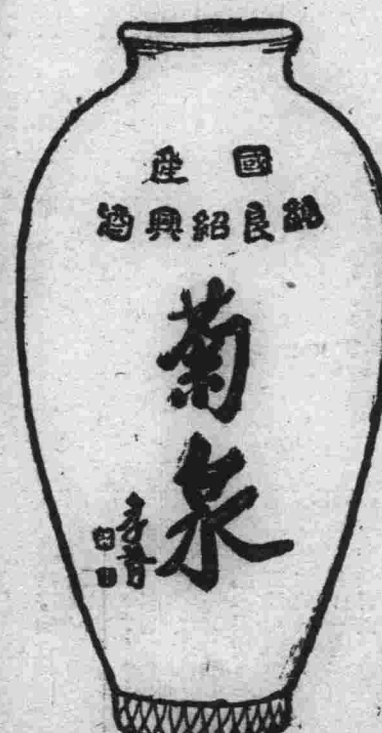 國產
純良紹興酒
菊泉
孝胥